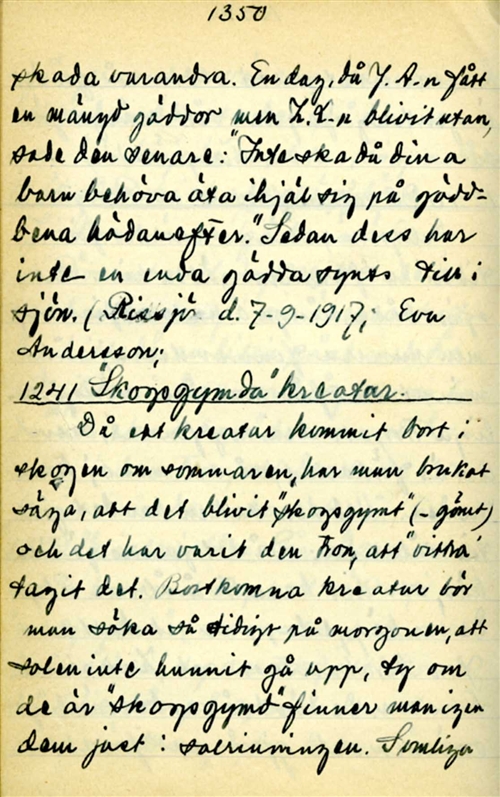 1350
skada varandra. En dag, då J. A-n fått
en mängd gäddor men Z. Z-n blivit utan,
sade den senare: "Inte ska då dina
barn behöva äta ihjäl sig på gädd-
bena hädanefter." Sedan dess har
inte en enda gädda synts till i
sjön. (Rissjö d. 7-9-1917; Eva
Andersson;
1241 "Skogsgymda" kreatur.
Då ett kreatur kommit bort i
skogen om sommaren, har man brukat
säga, att det blivit "skogsgymt" (-gömt)
och det har varit den tron, att "vittra"
tagit det. Bortkomna kreatur bör
man söka så tidigt på morgonen, att
solen inte hunnit gå upp, ty om
de är "skogsgymd" finner man igen
dem just i solrinningen. Somliga